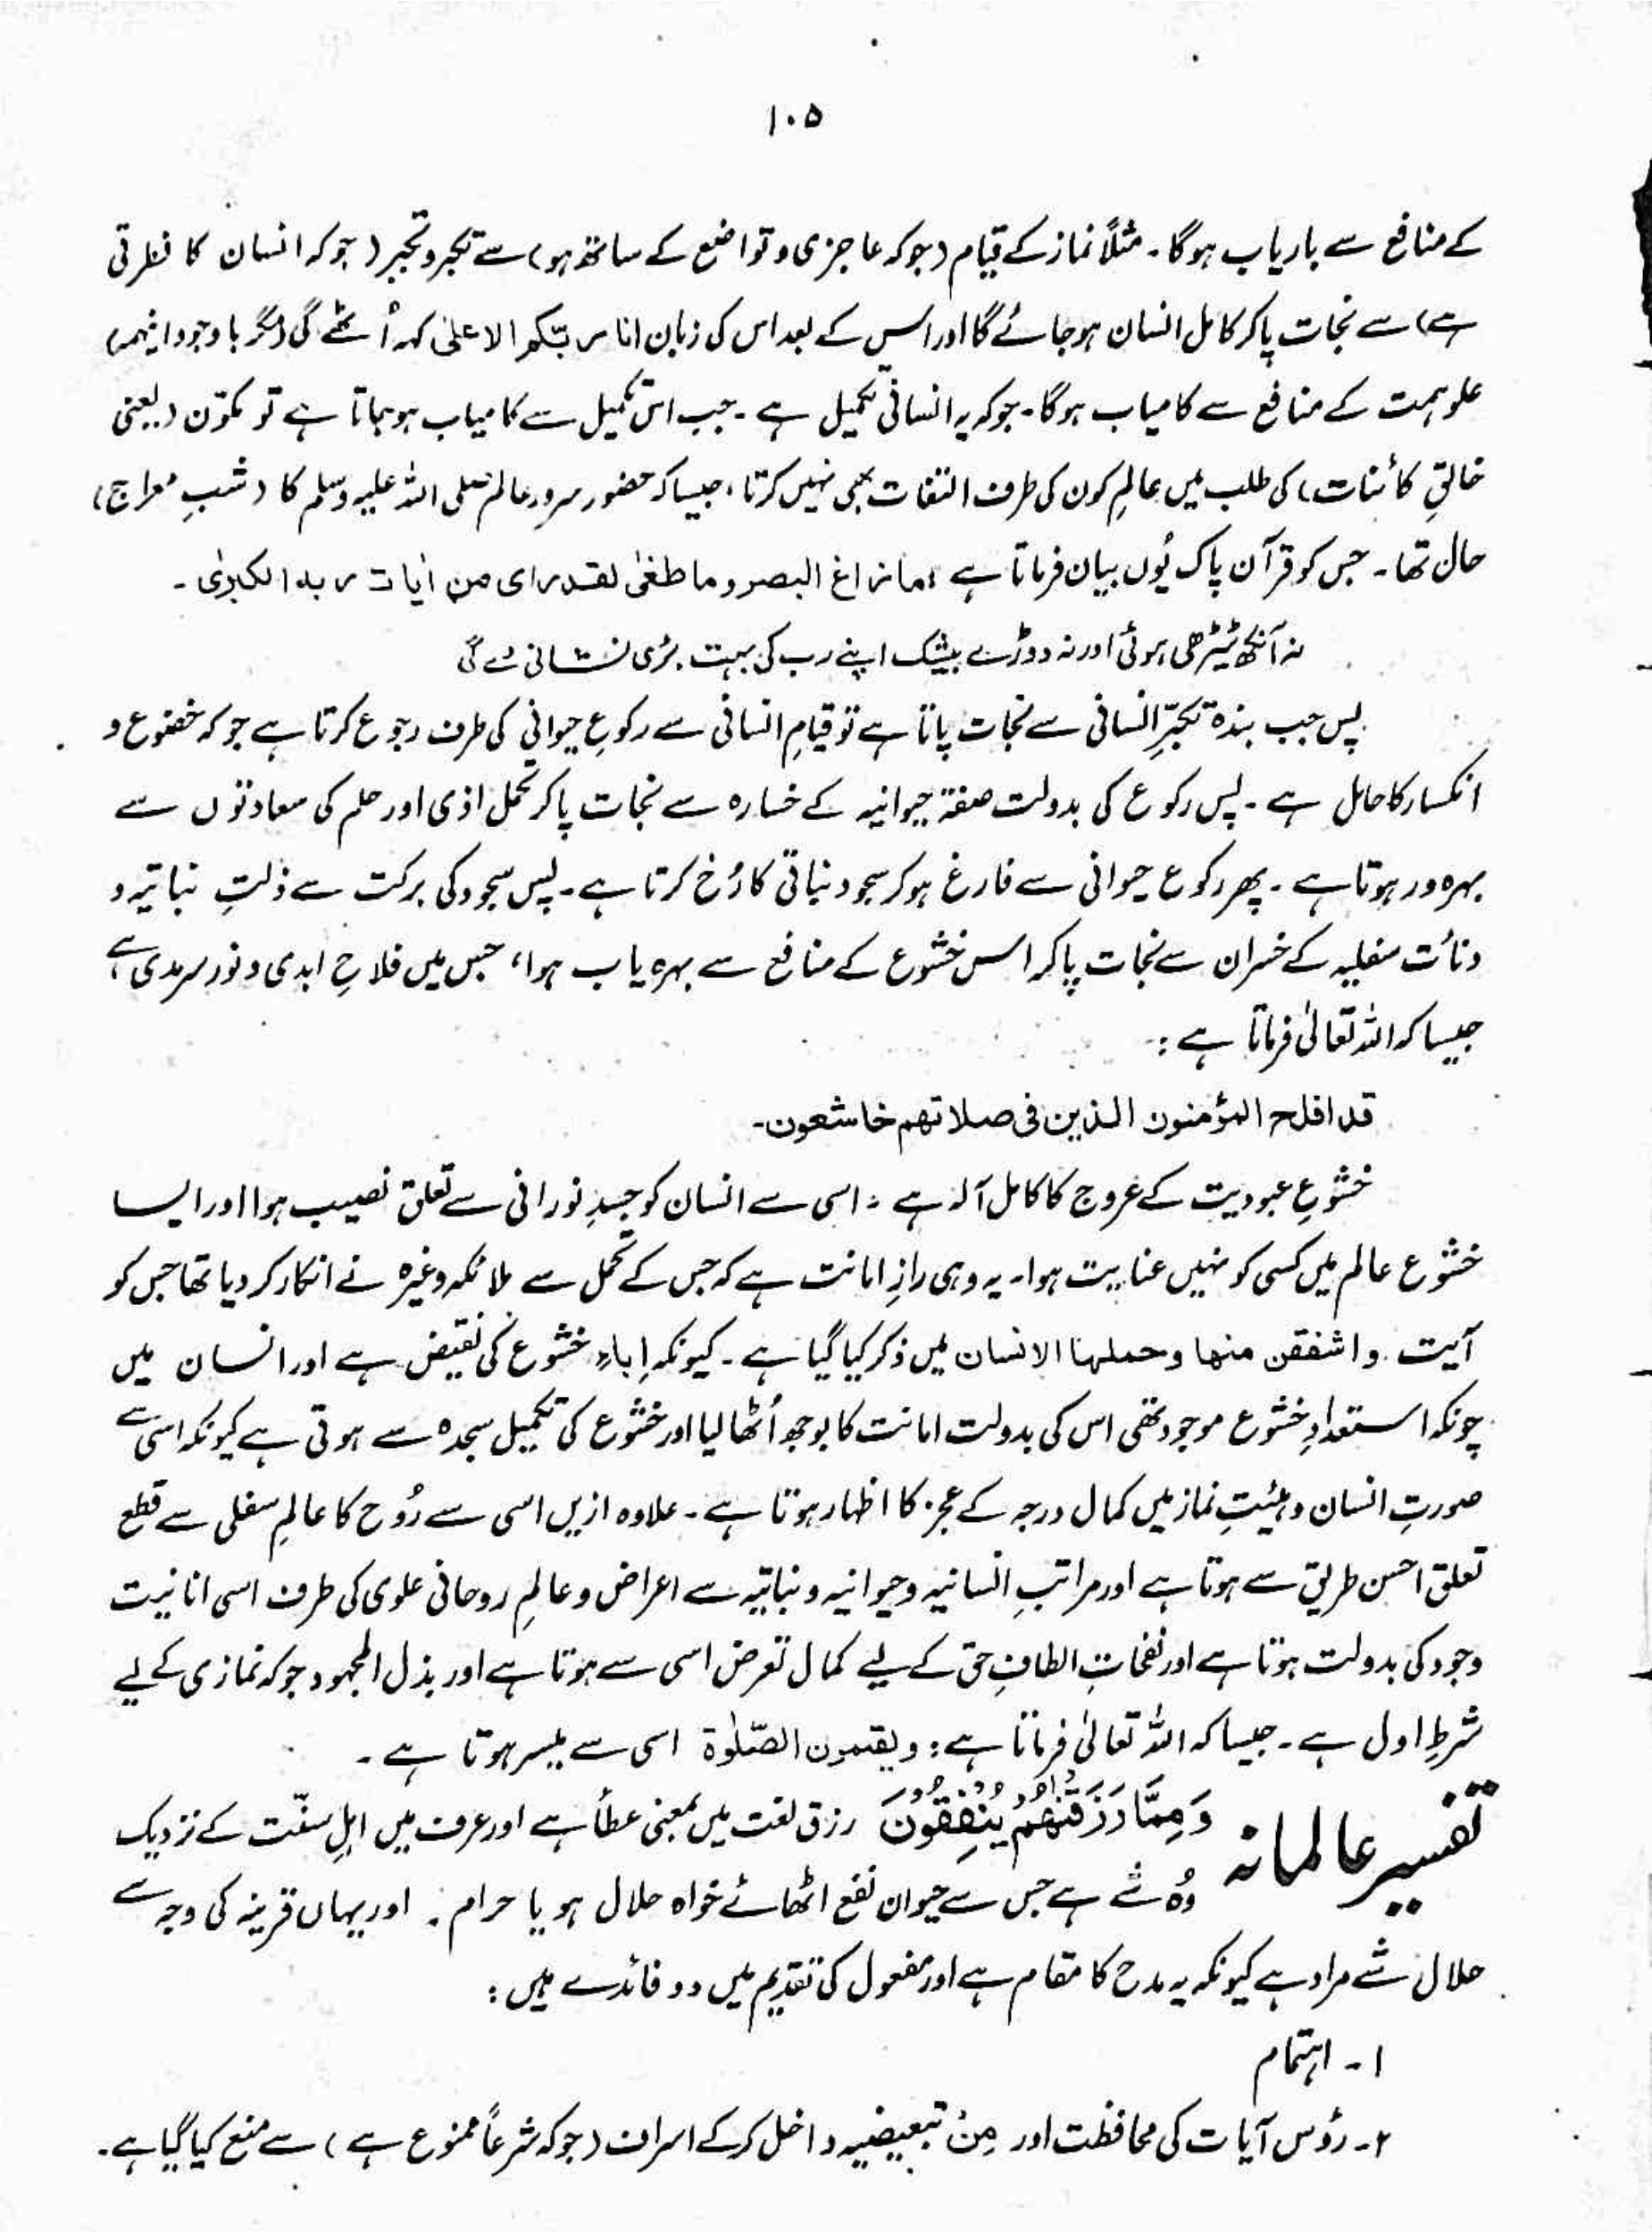 ۱۰۵
کے منافع سے باریاب ہوگا۔ مثلاً نماز کے قیام (جو کہ عاجزی و تواضع کے ساتھ ہو) سے تکبر و تجبر (جو کہ انسان کا نظرتی
ہے) سے نجات پا کر کامل انسان ہو جائے گا اور اس کے بعد اس کی زبان انا ربکم الاعلیٰ کہہ اُٹھے گی (مگر باوجود اینہمہ)
علو ہمت کے منافع سے کامیاب ہوگا۔ جو کہ یہ انسانی تکمیل ہے۔ جب اس تکمیل سے کامیاب ہو جاتا ہے تو مکوّن (یعنی
خالقِ کائنات) کی طلب میں عالمِ کون کی طرف التفات بھی نہیں کرتا، جیسا کہ حضور سرور عالم صلی اللہ علیہ وسلم کا (شبِ معراج)
حال تھا۔ جس کو قرآن پاک یُوں بیان فرماتا ہے: ما زاغ البصر وما طغیٰ لقد رای من اٰیات ربہ الکبریٰ۔
نہ آنکھ ٹیڑھی ہوئی اور نہ دوڑے بیشک اپنے رب کی بہت بڑی نشانی دے گی
پس جب بندہ تکبّرِ انسانی سے نجات پاتا ہے تو قیامِ انسانی سے رکوعِ حیوانی کی طرف رجوع کرتا ہے جو کہ خضوع و
انکسار کا حامل ہے۔ پس رکوع کی بدولت صفۃ حیوانیہ کے خسارہ سے نجات پا کر تحمل اذی اور حلم کی سعادتوں سے
بہرہ ور ہوتا ہے۔ پھر رکوع حیوانی سے فارغ ہو کر سجود نباتی کا رُخ کرتا ہے۔ پس سجود کی برکت سے ذلتِ نباتیہ و
دنائت سفلیہ کے خسران سے نجات پا کر اس خشوع کے منافع سے بہرہ یاب ہوا، جس میں فلاحِ ابدی و نور سرمدی ہے
جیسا کہ اللہ تعالیٰ فرماتا ہے:
قد افلح المؤمنون الذین فی صلاتھم خاشعون۔
خشوعِ عبودیت کے عروج کا کامل آلہ ہے۔ اسی سے انسان کو جسدِ نورانی سے تعلق نصیب ہوا اور ایسا
خشوع عالم میں کسی کو نہیں عنایت ہوا۔ یہ وہی رازِ امانت ہے کہ جس کے تحمل سے ملائکہ وغیرہ نے انکار کر دیا تھا جس کو
آیت واشفقن منھا وحملہا الانسان میں ذکر کیا گیا ہے۔ کیونکہ اِباءِ خشوع کی نقیض ہے اور انسان میں
چونکہ استعدادِ خشوع موجود تھی اس کی بدولت امانت کا بوجھ اُٹھا لیا اور خشوع کی تکمیل سجدہ سے ہوتی ہے کیونکہ اسی سے
صورتِ انسان و ہیئتِ نماز میں کمال درجہ کے عجز کا اظہار ہوتا ہے۔ علاوہ ازیں اسی سے رُوح کا عالمِ سفلی سے قطع
تعلق احسن طریق سے ہوتا ہے اور مراتبِ انسانیہ و حیوانیہ و نباتیہ سے اعراض و عالمِ روحانی علوی کی طرف اسی انانیت
وجود کی بدولت ہوتا ہے اور نفحاتِ الطافِ حق کے لیے کمال تعرض اسی سے ہوتا ہے اور بذل المجہود جو کہ نمازی کے لیے
شرطِ اول ہے۔ جیسا کہ اللہ تعالیٰ فرماتا ہے: ویقیمون الصّلوٰۃ اسی سے میسر ہوتا ہے۔
تفسیر عالمانہ وَمِمَّا رَزَقْنٰهُمْ يُنْفِقُوْنَ رزق لغت میں بمعنی عطأ ہے اور عرف میں اہلِ سنّت کے نزدیک
وُہ شے ہے جس سے حیوان نفع اٹھائے خواہ حلال ہو یا حرام۔ اور یہاں قرینہ کی وجہ سے
حلال شے مراد ہے کیونکہ یہ مدح کا مقام ہے اور مفعول کی تقدیم میں دو فائدے ہیں:
۱۔ اہتمام
۲۔ رؤس آیات کی محافظت اور مِنْ تبعیضیہ داخل کر کے اسراف (جو کہ شرعاً ممنوع ہے) سے منع کیا گیا ہے۔